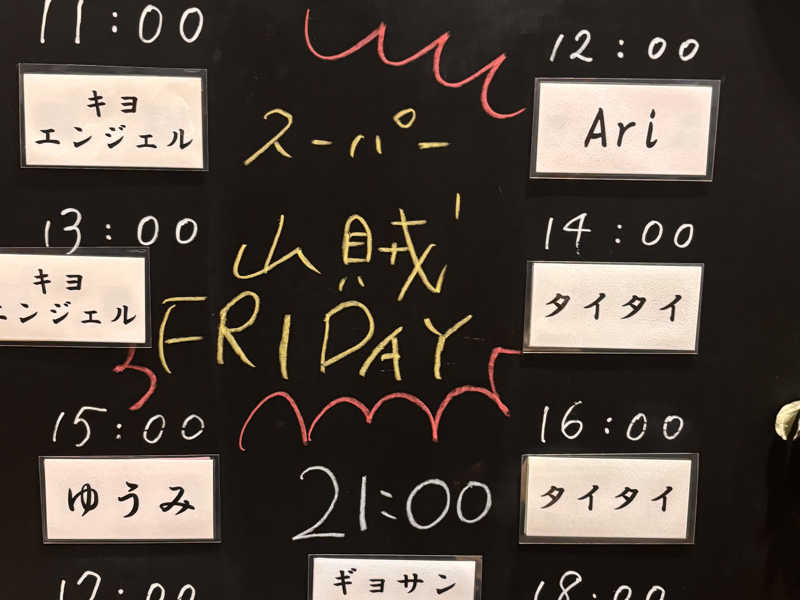 11:00
キヨ
エンジェル
12:00
Ari
スーパー
山賊
FRIDAY
13:00
キヨ
エンジェル
14:00
タイタイ
15:00
ゆうみ
16:00
タイタイ
21:00
ギョサン
17:00
18:00